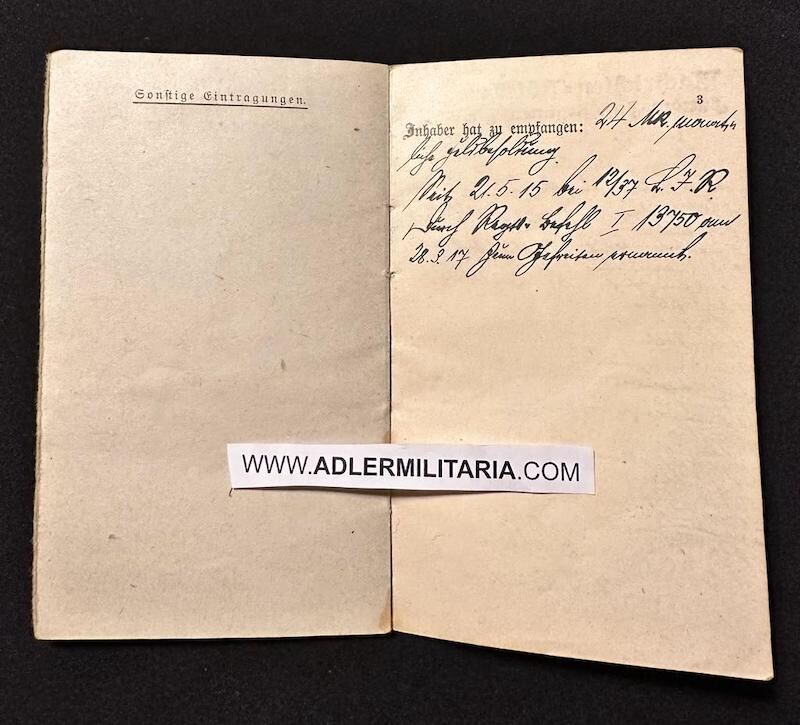 Sonstige Eintragungen.
3
Inhaber hat zu empfangen: 24 Mk. monat-
liche Geldbesoldung.
Seit 21.5.15 bei 12/37 L. I. R.
Durch Regts. Befehl I 13750 vom
28.3.17 zum Gefreiten ernannt.
WWW.ADLERMILITARIA.COM